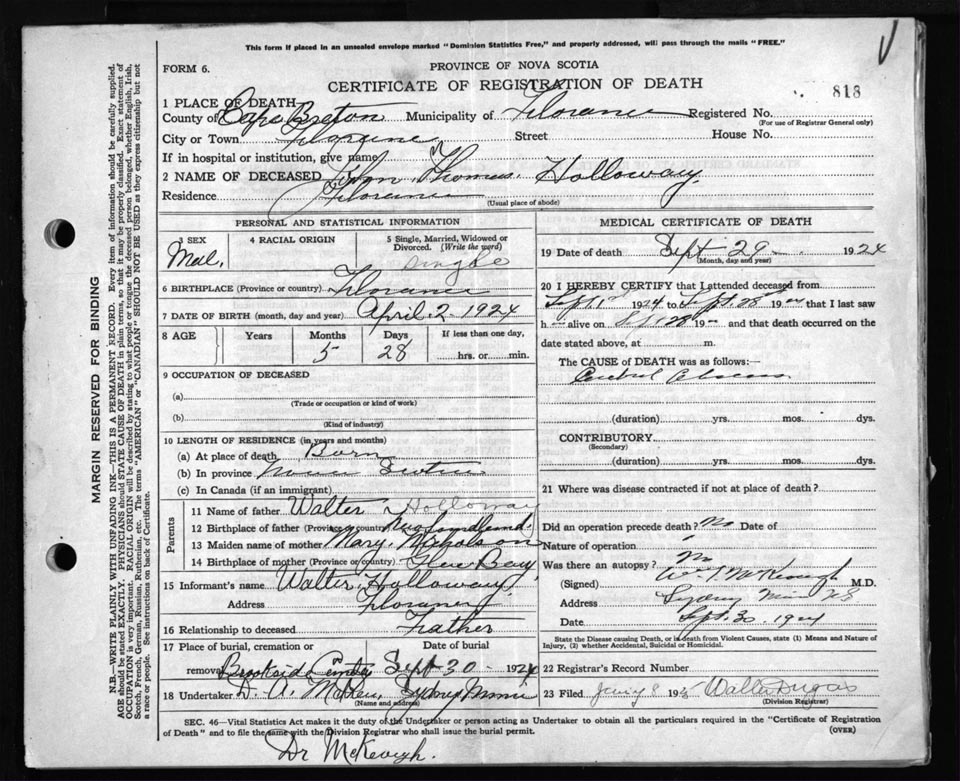 This form if placed in an unsealed envelope marked "Dominion Statistics Free," and properly addressed, will pass through the mails "FREE."
FORM 6.
PROVINCE OF NOVA SCOTIA
CERTIFICATE OF REGISTRATION OF DEATH
818
1 PLACE OF DEATH
County of Cape Breton Municipality of Florence Registered No.
(For use of Registrar General only)
City or Town Florence Street House No.
If in hospital or institution, give name
2 NAME OF DECEASED John Thomas Holloway
Residence Florence
(Usual place of abode)
PERSONAL AND STATISTICAL INFORMATION
3 SEX 4 RACIAL ORIGIN 5 Single, Married, Widowed or Divorced. (Write the word)
Male Single
6 BIRTHPLACE (Province or country) Florence
7 DATE OF BIRTH (month, day and year) April 2 - 1924
8 AGE Years Months Days If less than one day,
5 28 hrs. or min.
9 OCCUPATION OF DECEASED
(a)
(Trade or occupation or kind of work)
(b)
(Kind of industry)
10 LENGTH OF RESIDENCE (in years and months)
(a) At place of death Born
(b) In province Nova Scotia
(c) In Canada (if an immigrant)
Parents
11 Name of father Walter Holloway
12 Birthplace of father (Province or country) Newfoundland
13 Maiden name of mother Mary Nicholson
14 Birthplace of mother (Province or country) Glace Bay
15 Informant's name Walter Holloway
Address Florence
16 Relationship to deceased Father
17 Place of burial, cremation or Date of burial
removal Brookside Cemetery Sept 30 - 1924
18 Undertaker D. A. Sydney Mines
(Name and address)
MEDICAL CERTIFICATE OF DEATH
19 Date of death Sept 29 - 1924
(Month, day and year)
20 I HEREBY CERTIFY that I attended deceased from
Sept 1 1924 to Sept 28 19 that I last saw
h alive on 28 19 and that death occurred on
date stated above, at m.
The CAUSE of DEATH was as follows:—
Cerebral Abscess
(duration) yrs. mos. dys.
CONTRIBUTORY
(Secondary)
(duration) yrs. mos. dys.
21 Where was disease contracted if not at place of death?
Did an operation precede death? No Date of
Nature of operation
Was there an autopsy? No
(Signed) McKeough M.D.
Address Sydney Mines NS
Date Sept. 30 1924
State the Disease causing Death, or in death from Violent Causes, state (1) Means and Nature of
Injury, (2) whether Accidental, Suicidal or Homicidal.
22 Registrar's Record Number
23 Filed 8 192 Walter Dugas
(Division Registrar)
SEC. 46—Vital Statistics Act makes it the duty of the Undertaker or person acting as Undertaker to obtain all the particulars required in the "Certificate of Registration
of Death" and to file the same with the Division Registrar who shall issue the burial permit.
(OVER)
Dr McKeough.
MARGIN RESERVED FOR BINDING
N.B.—WRITE PLAINLY WITH UNFADING INK—THIS IS A PERMANENT RECORD. Every item of information should be carefully supplied.
AGE should be stated EXACTLY. PHYSICIANS should STATE CAUSE OF DEATH in plain terms, so that it may be properly classified. Exact statement of
OCCUPATION is very important. RACIAL ORIGIN will be described by stating to what people or tongue the deceased person belonged, whether English, Irish,
Scotch, French, German, Russian, Ruthenian, etc. The terms "AMERICAN" or "CANADIAN" SHOULD NOT BE USED as they express citizenship but not
a race or people. See instructions on back of Certificate.